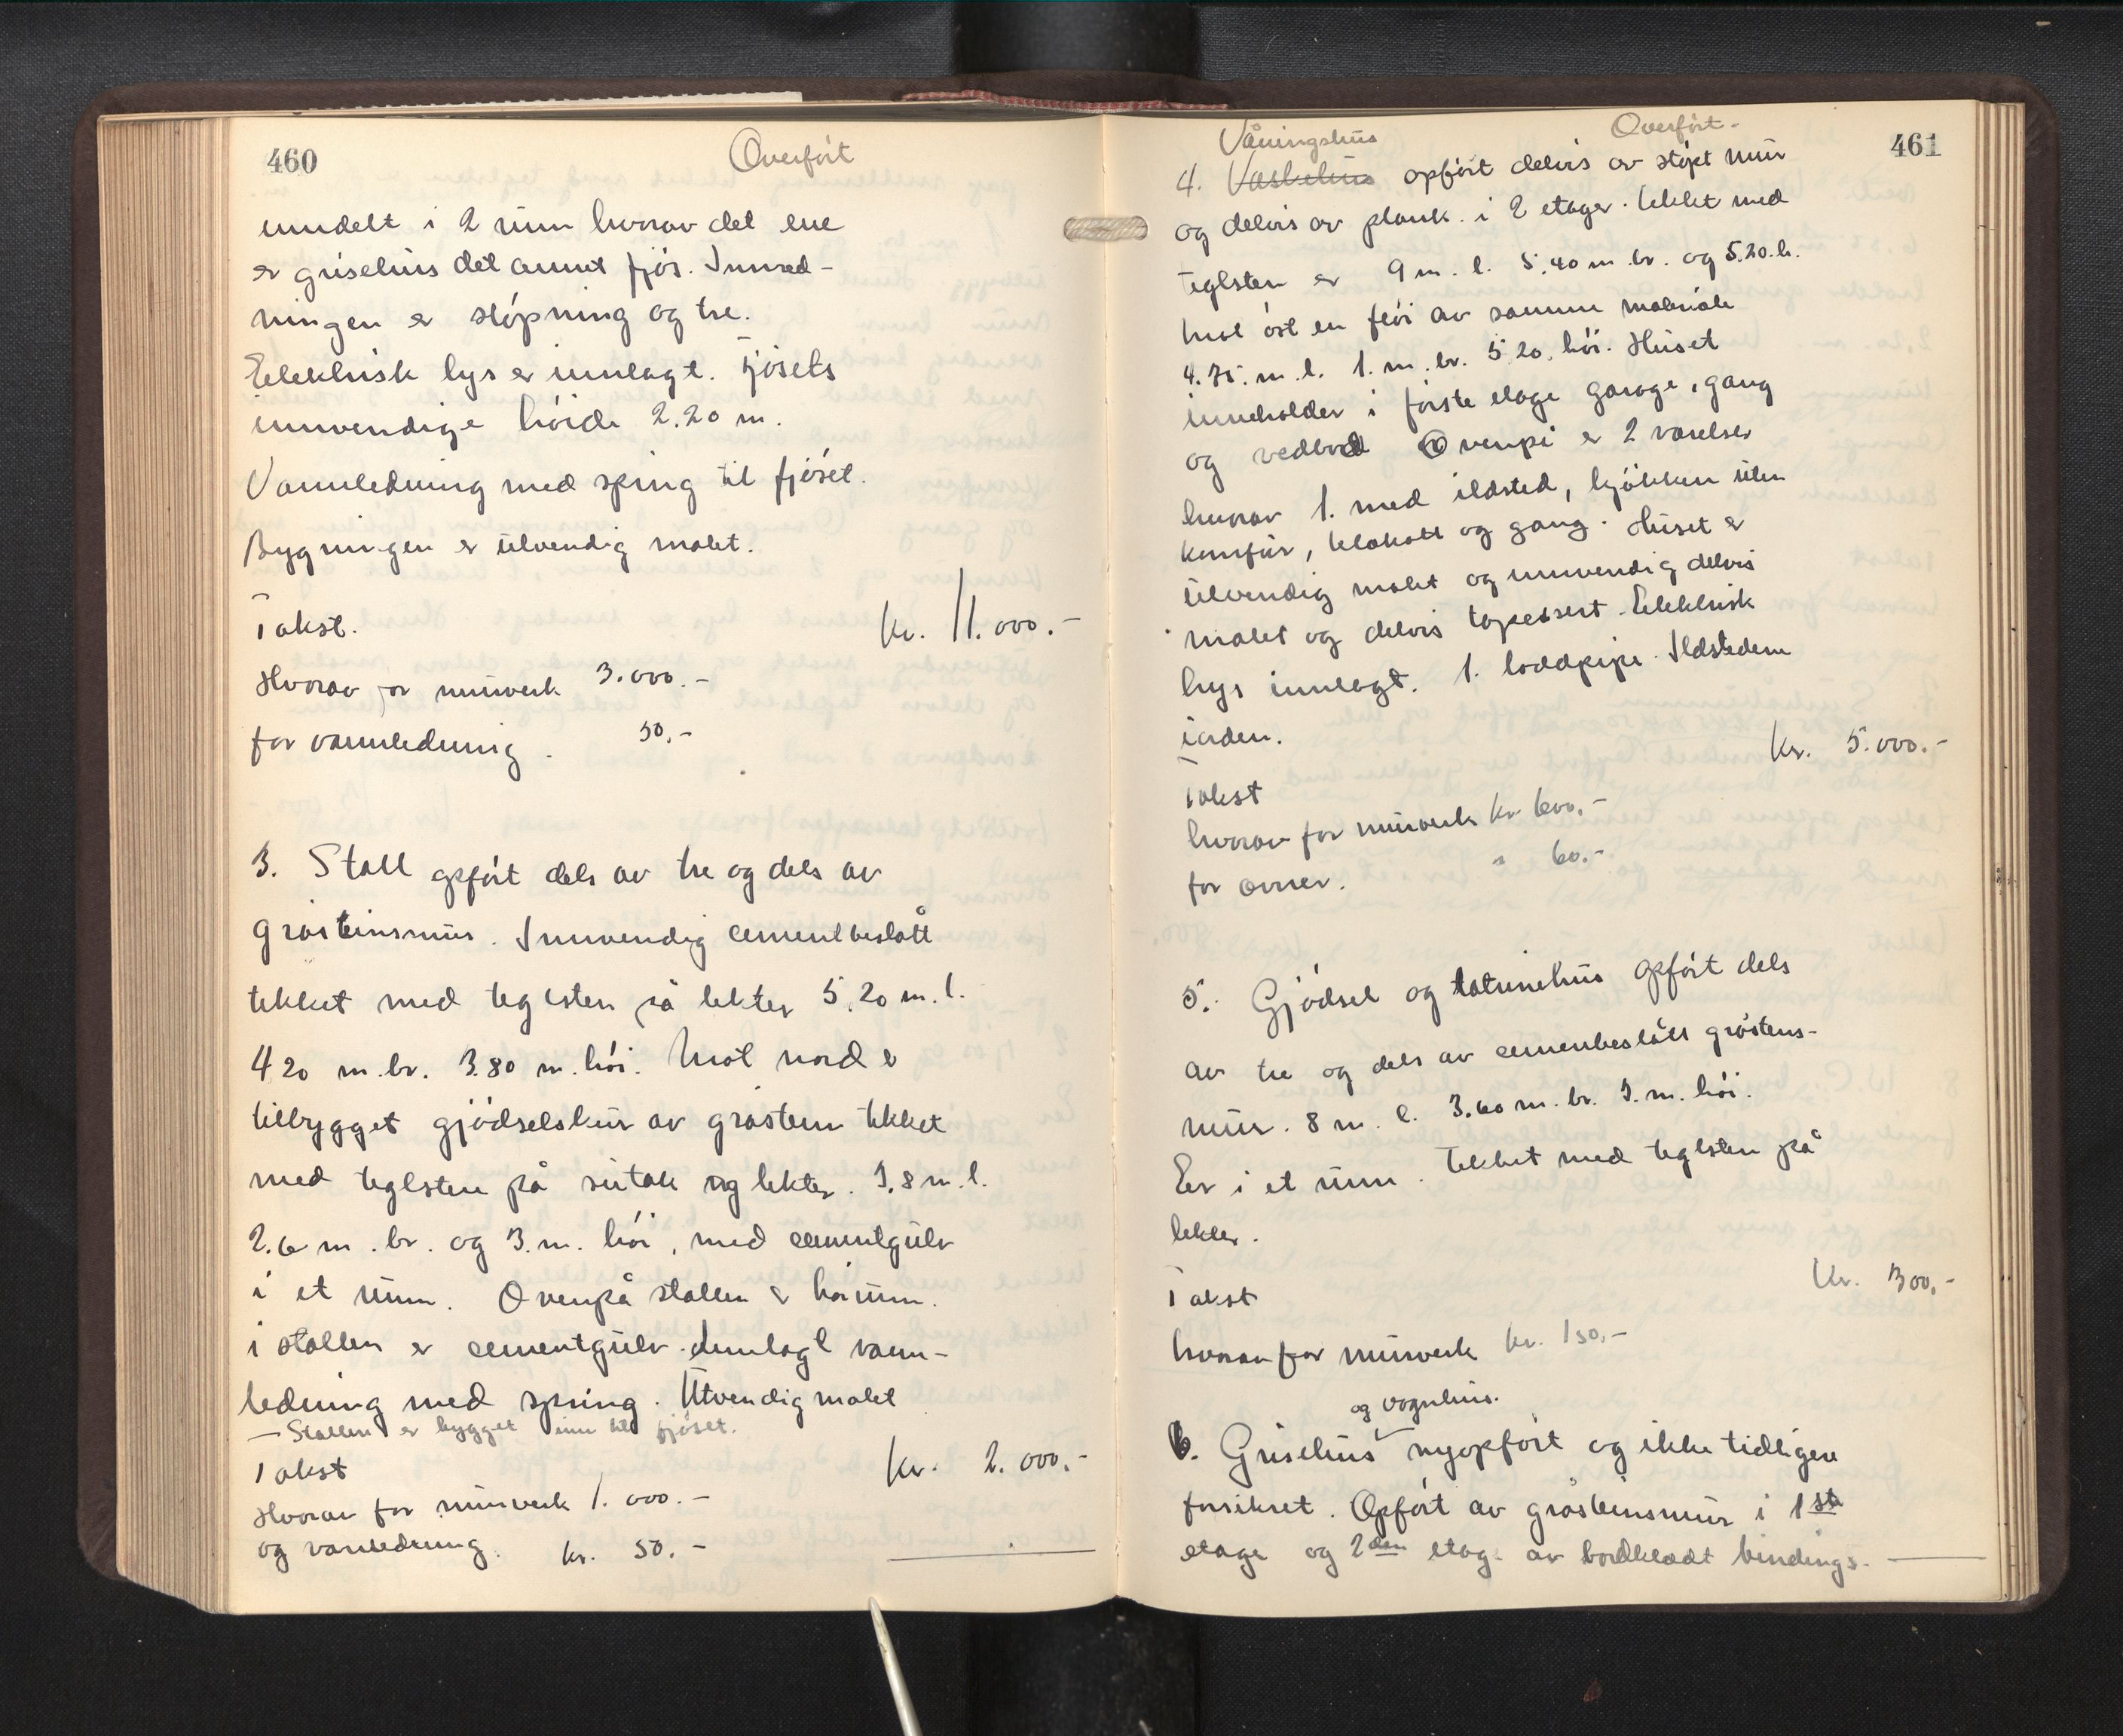 460
Overført
inndelt i 2 rum hvorav det ene
er grisehus det annet fjøs. Innred-
ningen er støpning og tre.
Elektrisk lys er innlagt. Fjøsets
innvendige høide 2.20 m.
Vannledning med spring til fjøset.
Bygningen er utvendig malet.
Takst. kr. 11.000.-
Hvorav for murverk 3.000.-
for vannledning. 50.-
3. Stall opført dels av tre og dels av
gråsteinsmur. Innvendig cementbeslått
tekket med teglsten på lekter 5.20 m. l.
4 20 m. br. 3.80 m. høi. Mot nord er
tilbygget gjødselskur av gråsten tekket
med teglsten på sutak og lekter. 3.8 m. l.
2.6 m. br. og 3. m. høi, med cementgulv
i et rum. Ovenpå stallen er høirum.
i stallen er cementgulv. Innlagt vann-
ledning med spring. Utvendig malet
- Stallen er bygget inn til fjøset.
Takst kr. 2.000.-
Hvorav for murverk 1.000.-
og vannledning. kr. 50.-
461
Overført-
Våningshus
4. Vaskehus opført delvis av støpt mur
og delvis av plank. i 2 etager. tekket med
teglsten er 9 m. l. 5.40 m. br. og 5.20. h.
mot øst en fløi av samme materiale
4.75. m. l. 1. m. br. 5 20. høi. Huset
inneholder i første etage garage, gang
og vedbod Ovenpå er 2 værelser
hvorav 1. med ildsted, kjøkken uten
komfur, klokott og gang. Huset er
utvendig malet og innvendig delvis
malet og delvis tapetsert. Elektrisk
lys innlagt. 1. loddpipe. Ildstedene
i orden.
kr. 5.000.-
Takst
hvorav for murverk kr. 600.-
for ovner. " 60.-
5. Gjødsel og latrinehus opført dels
av tre og dels av cementbeslått gråstens-
mur. 8 m. l. 3.60 m. br. 3. m. høi.
Er i et rum. Tekket med teglsten på
lekter.
Takst kr. 300.-
hvorav for murverk kr. 150.-
og vognhus.
6. Grisehus nyopført og ikke tidligere
forsikret. Opført av gråsteinsmur i 1ste
etage og 2den etag. av bordklædt bindings-